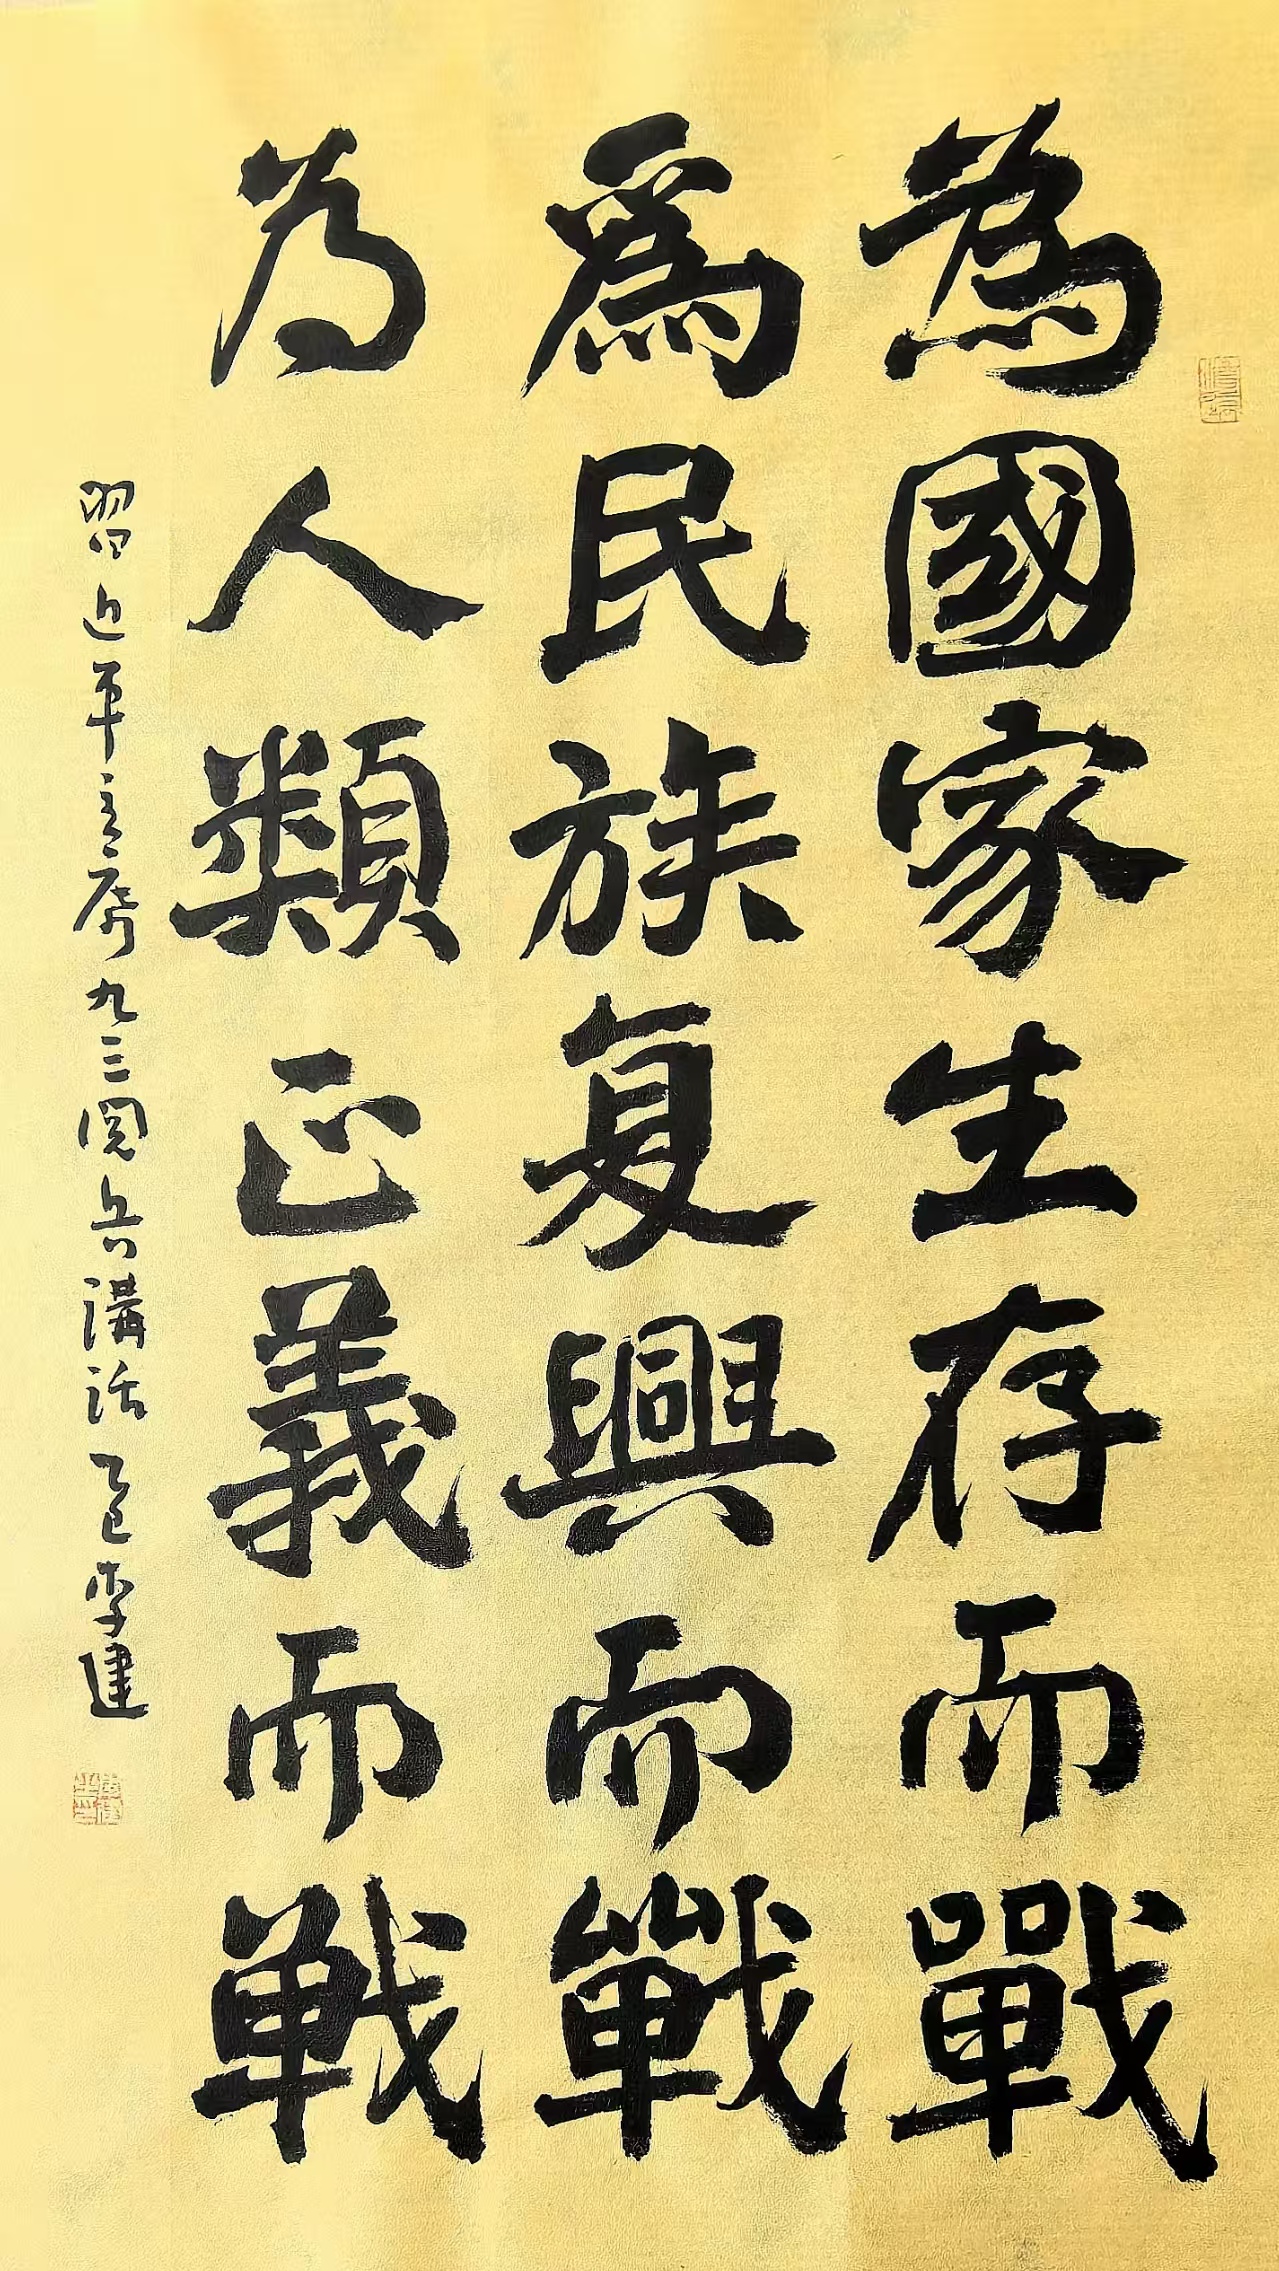 為國家生存而戰
爲民族复興而戰
为人類正義而戦
習近平主席九三閱兵講話 乙巳李建